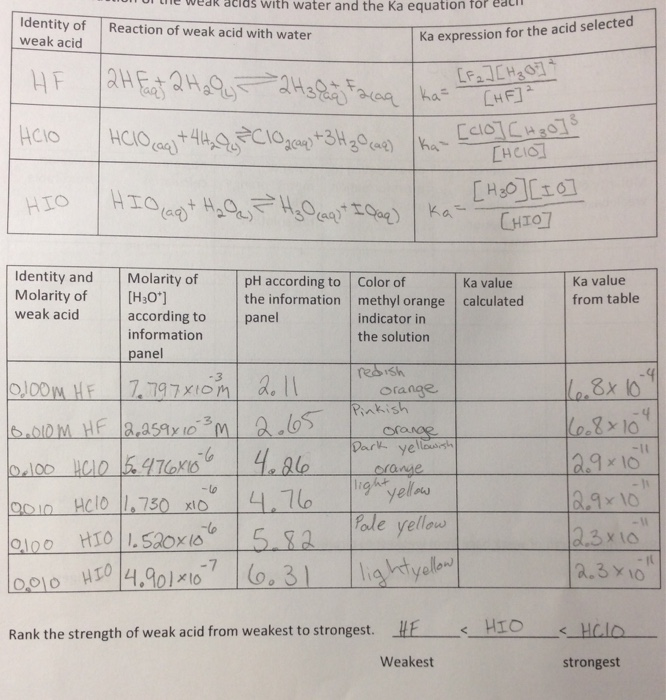 weak acids with water and the Ka equation for each
Identity of weak acid | Reaction of weak acid with water | Ka expression for the acid selected
HF | 2HF(aq) + 2H₂O(l) ⇌ 2H₃O(aq)⁺ + F₂(aq | Ka= [F₂][H₃O⁺]² / [HF]²
HClO | HClO(aq) + 4H₂O(l) ⇌ ClO₂(aq) + 3H₃O(aq) | Ka= [ClO][H₃O]³ / [HClO]
HIO | HIO(aq) + H₂O(l) ⇌ H₃O(aq)⁺ IO(aq) | Ka= [H₃O][IO] / [HIO]
Identity and Molarity of weak acid | Molarity of [H₃O⁺] according to information panel | pH according to the information panel | Color of methyl orange indicator in the solution | Ka value calculated | Ka value from table
0.100M HF | 7.797x10⁻³M | 2.11 | redish orange | | 6.8x10⁻⁴
0.010M HF | 2.259x10⁻³M | 2.65 | Pinkish orange | | 6.8x10⁻⁴
0.100 HClO | 5.476x10⁻⁶ | 4.26 | Dark yellowish orange | | 2.9x10⁻¹¹
0.010 HClO | 1.730 x10⁻⁶ | 4.76 | light yellow | | 2.9x10⁻¹¹
0.100 HIO | 1.520x10⁻⁶ | 5.82 | Pale yellow | | 2.3x10⁻¹¹
0.010 HIO | 4.901x10⁻⁷ | 6.31 | light yellow | | 2.3x10⁻¹¹
Rank the strength of weak acid from weakest to strongest. HF < HIO < HClO
Weakest strongest